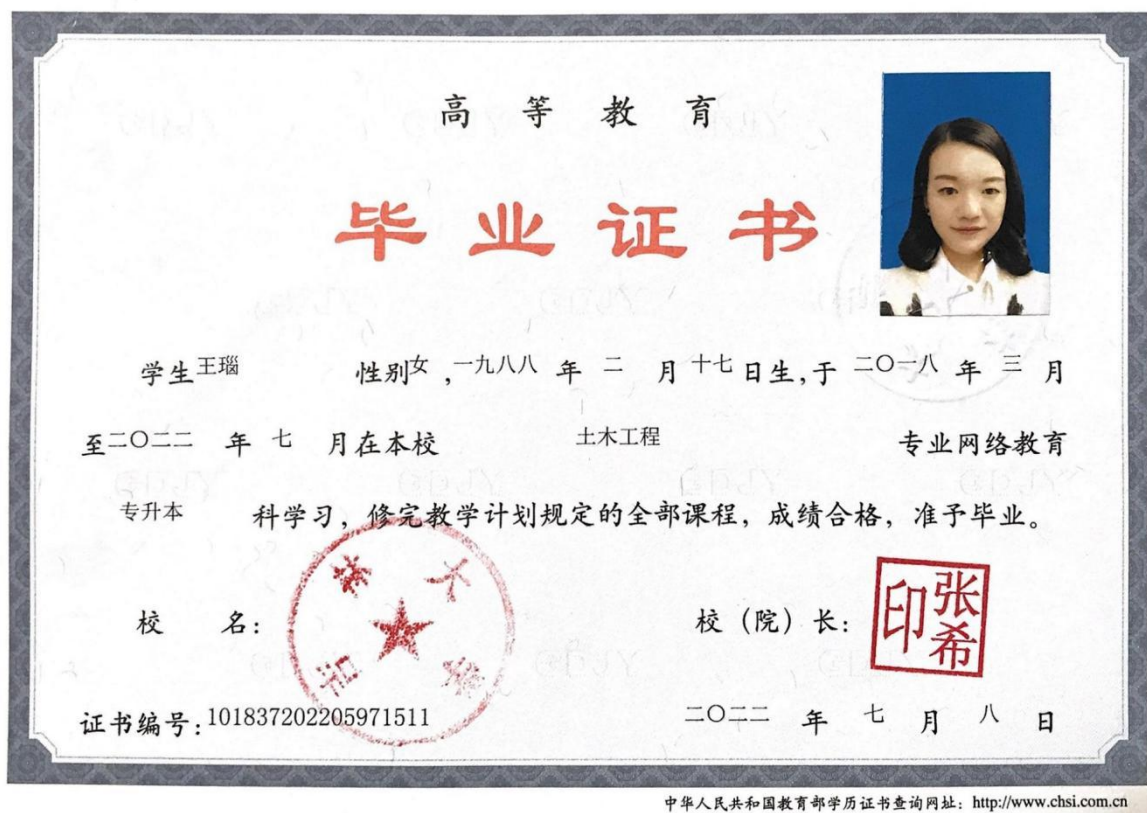 高等教育
毕业证书
学生王瑙 性别女,一九八八年二月十七日生,于二〇一八年三月
至二〇二二年七月在本校 土木工程 专业网络教育
专升本 科学习，修完教学计划规定的全部课程，成绩合格，准予毕业。
校 名: 校（院）长:
吉林大学
张希印
证书编号:101837202205971511 二〇二二年七月八日
中华人民共和国教育部学历证书查询网址: http://www.chsi.com.cn